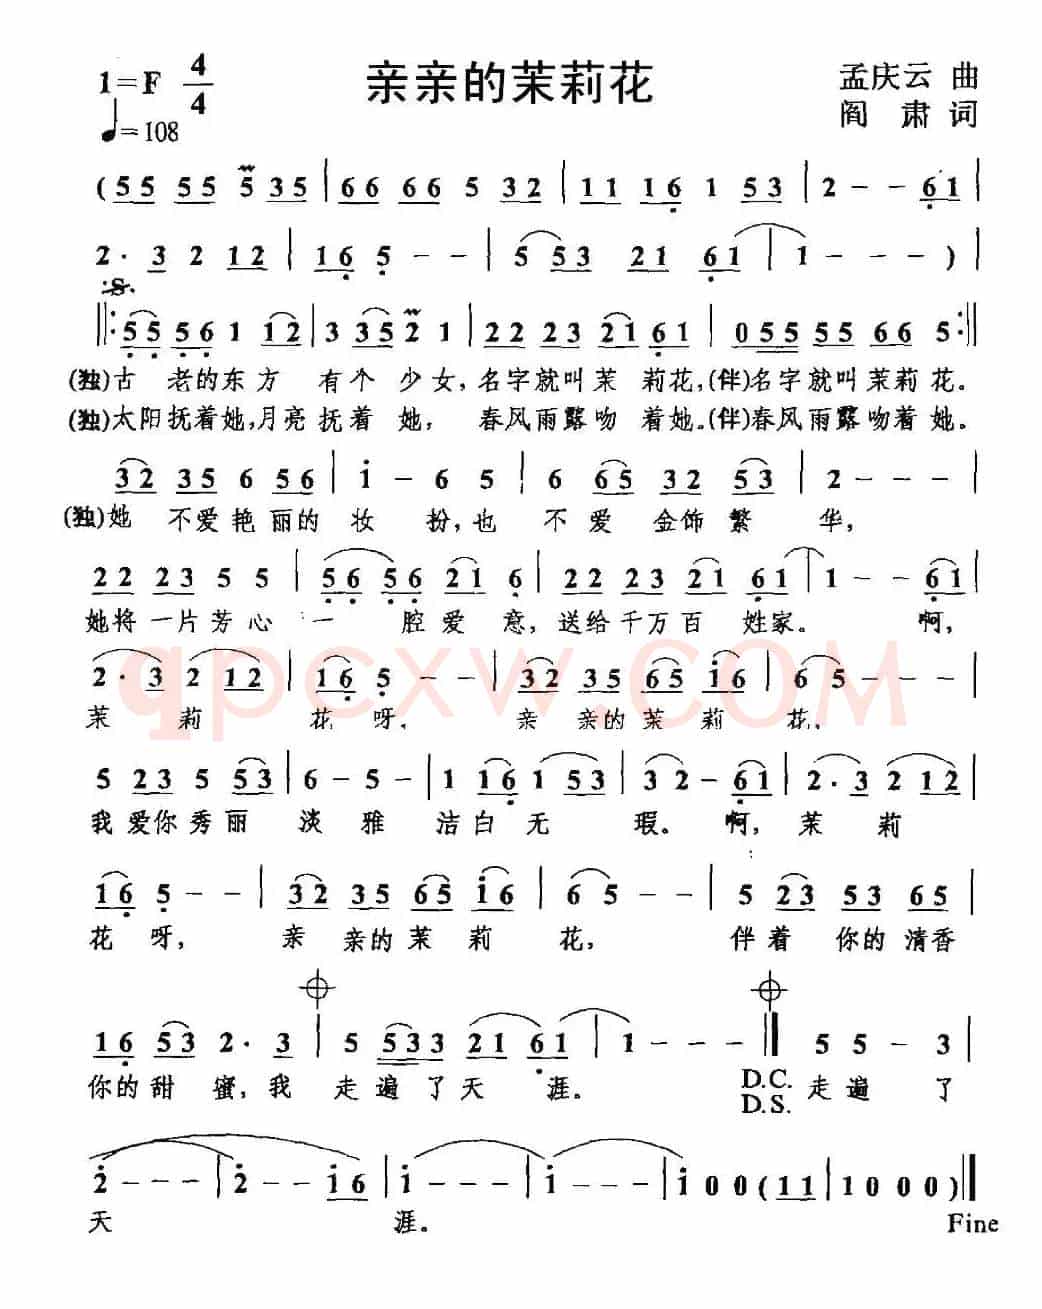 亲亲的茉莉花
1=F 4/4
孟庆云 曲
♩=108
阎 肃 词
(55 55 5 35 | 66 66 5 32 | 11 16 1 53 | 2 - - 61 |
2· 3 2 12 | 16 5 - - | 5 53 21 61 | 1 - - - ) |
‖: 55 56 1 12 | 3 35 2 1 | 22 23 21 61 | 0 55 55 66 5 :‖
(独)古 老的东方 有个 少女,名字就叫茉 莉花,(伴)名字就叫茉莉花。
(独)太阳抚着她,月亮抚着 她, 春风雨露吻 着她。(伴)春风雨露吻着她。
32 35 6 56 | i - 6 5 | 6 65 32 53 | 2 - - - |
(独)她 不爱艳丽的 妆 扮,也 不 爱 金饰繁 华,
22 23 5 5 | 56 56 21 6 | 22 23 21 61 | 1 - - 61 |
她将一片芳心 一 腔爱 意,送给千万百 姓家。 啊,
2· 3 2 12 | 16 5 - - | 32 35 65 i6 | 65 5 - - |
茉 莉 花 呀, 亲 亲的茉 莉 花,
qpcxw.COM
5 23 5 53 | 6 - 5 - | 1 16 1 53 | 3 2 - 61 | 2· 3 2 12 |
我 爱你秀丽 淡 雅 洁白 无 瑕。 啊, 茉 莉
16 5 - - | 32 35 65 i6 | 6 5 - - | 5 23 53 65 |
花 呀, 亲 亲的茉 莉 花, 伴着 你的 清香
16 53 2· 3 | 5 533 21 61 | 1 - - - ‖ 5 5 - 3 |
你的甜 蜜,我 走 遍 了天 涯。 D.C. 走遍 了
D.S.
2 - - - | 2 - - i6 | i - - - | i - - - | i 0 0 (11 | 1 0 0 0 ) ‖
天 涯。 Fine